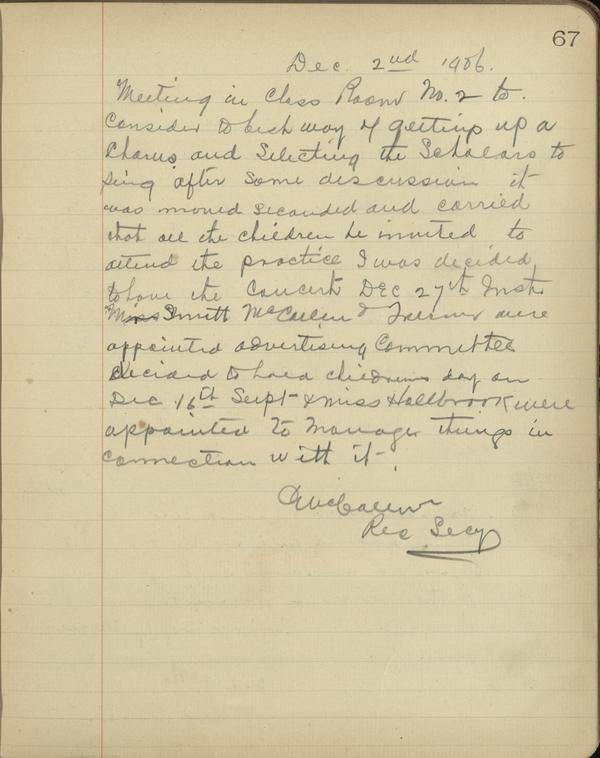 67
Dec. 2nd 1906.
Meeting in Class Room No. 2 to
Consider to best way of getting up a
Chorus and Selecting the Scholars to
sing after some discussion it
was moved seconded and carried
that all the children be invited to
attend the practice I was decided
to have the Concert DEC 27th Inst
Smitt McCallum & were
appointed advertising Committee
decided to hold childrens day on
Dec 16th Supt & Miss Hallbrook were
appointed to Manage things in
connection with it.
Rec Secy